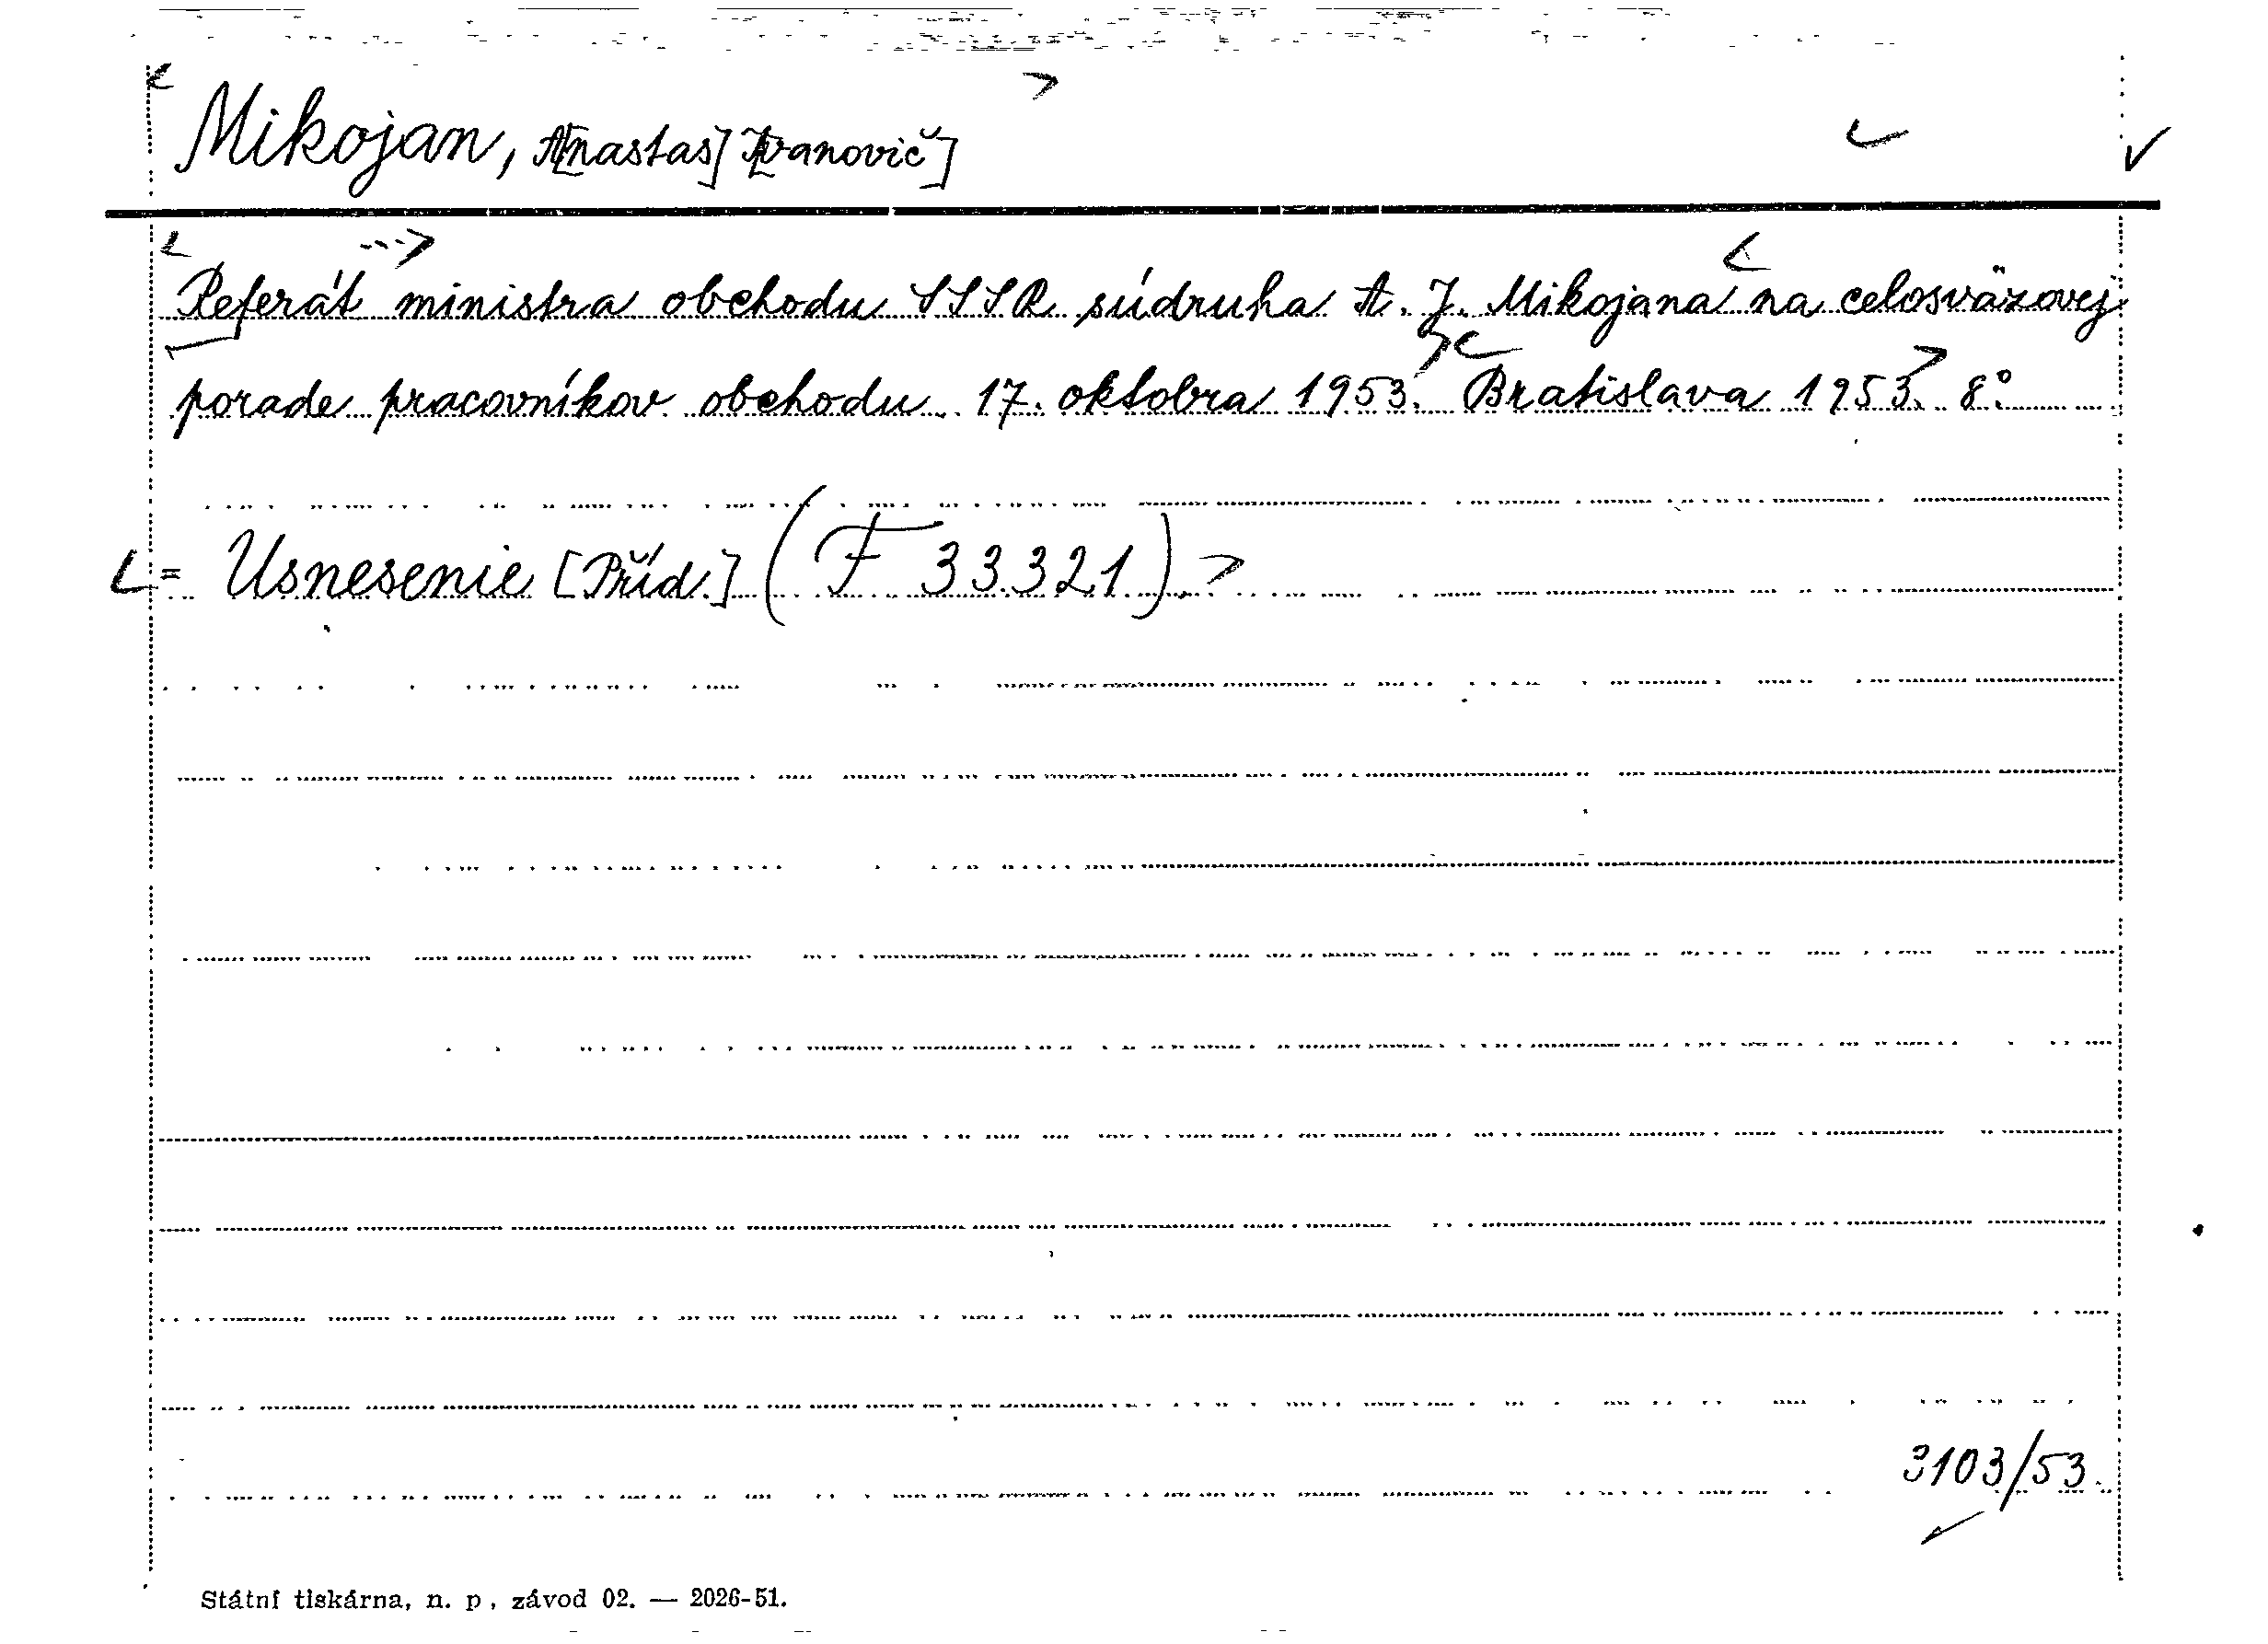 Mikojan, A[nastas] I[vanovič]
Referát ministra obchodu SSSR súdruha A. J. Mikojana na celosväzovej
porade pracovníkov obchodu 17. oktobra 1953. Bratislava 1953. 8°
= Usnesenie [Příd.] (F 33.321).
3103/53.
Státní tiskárna, n. p, závod 02. — 2026-51.